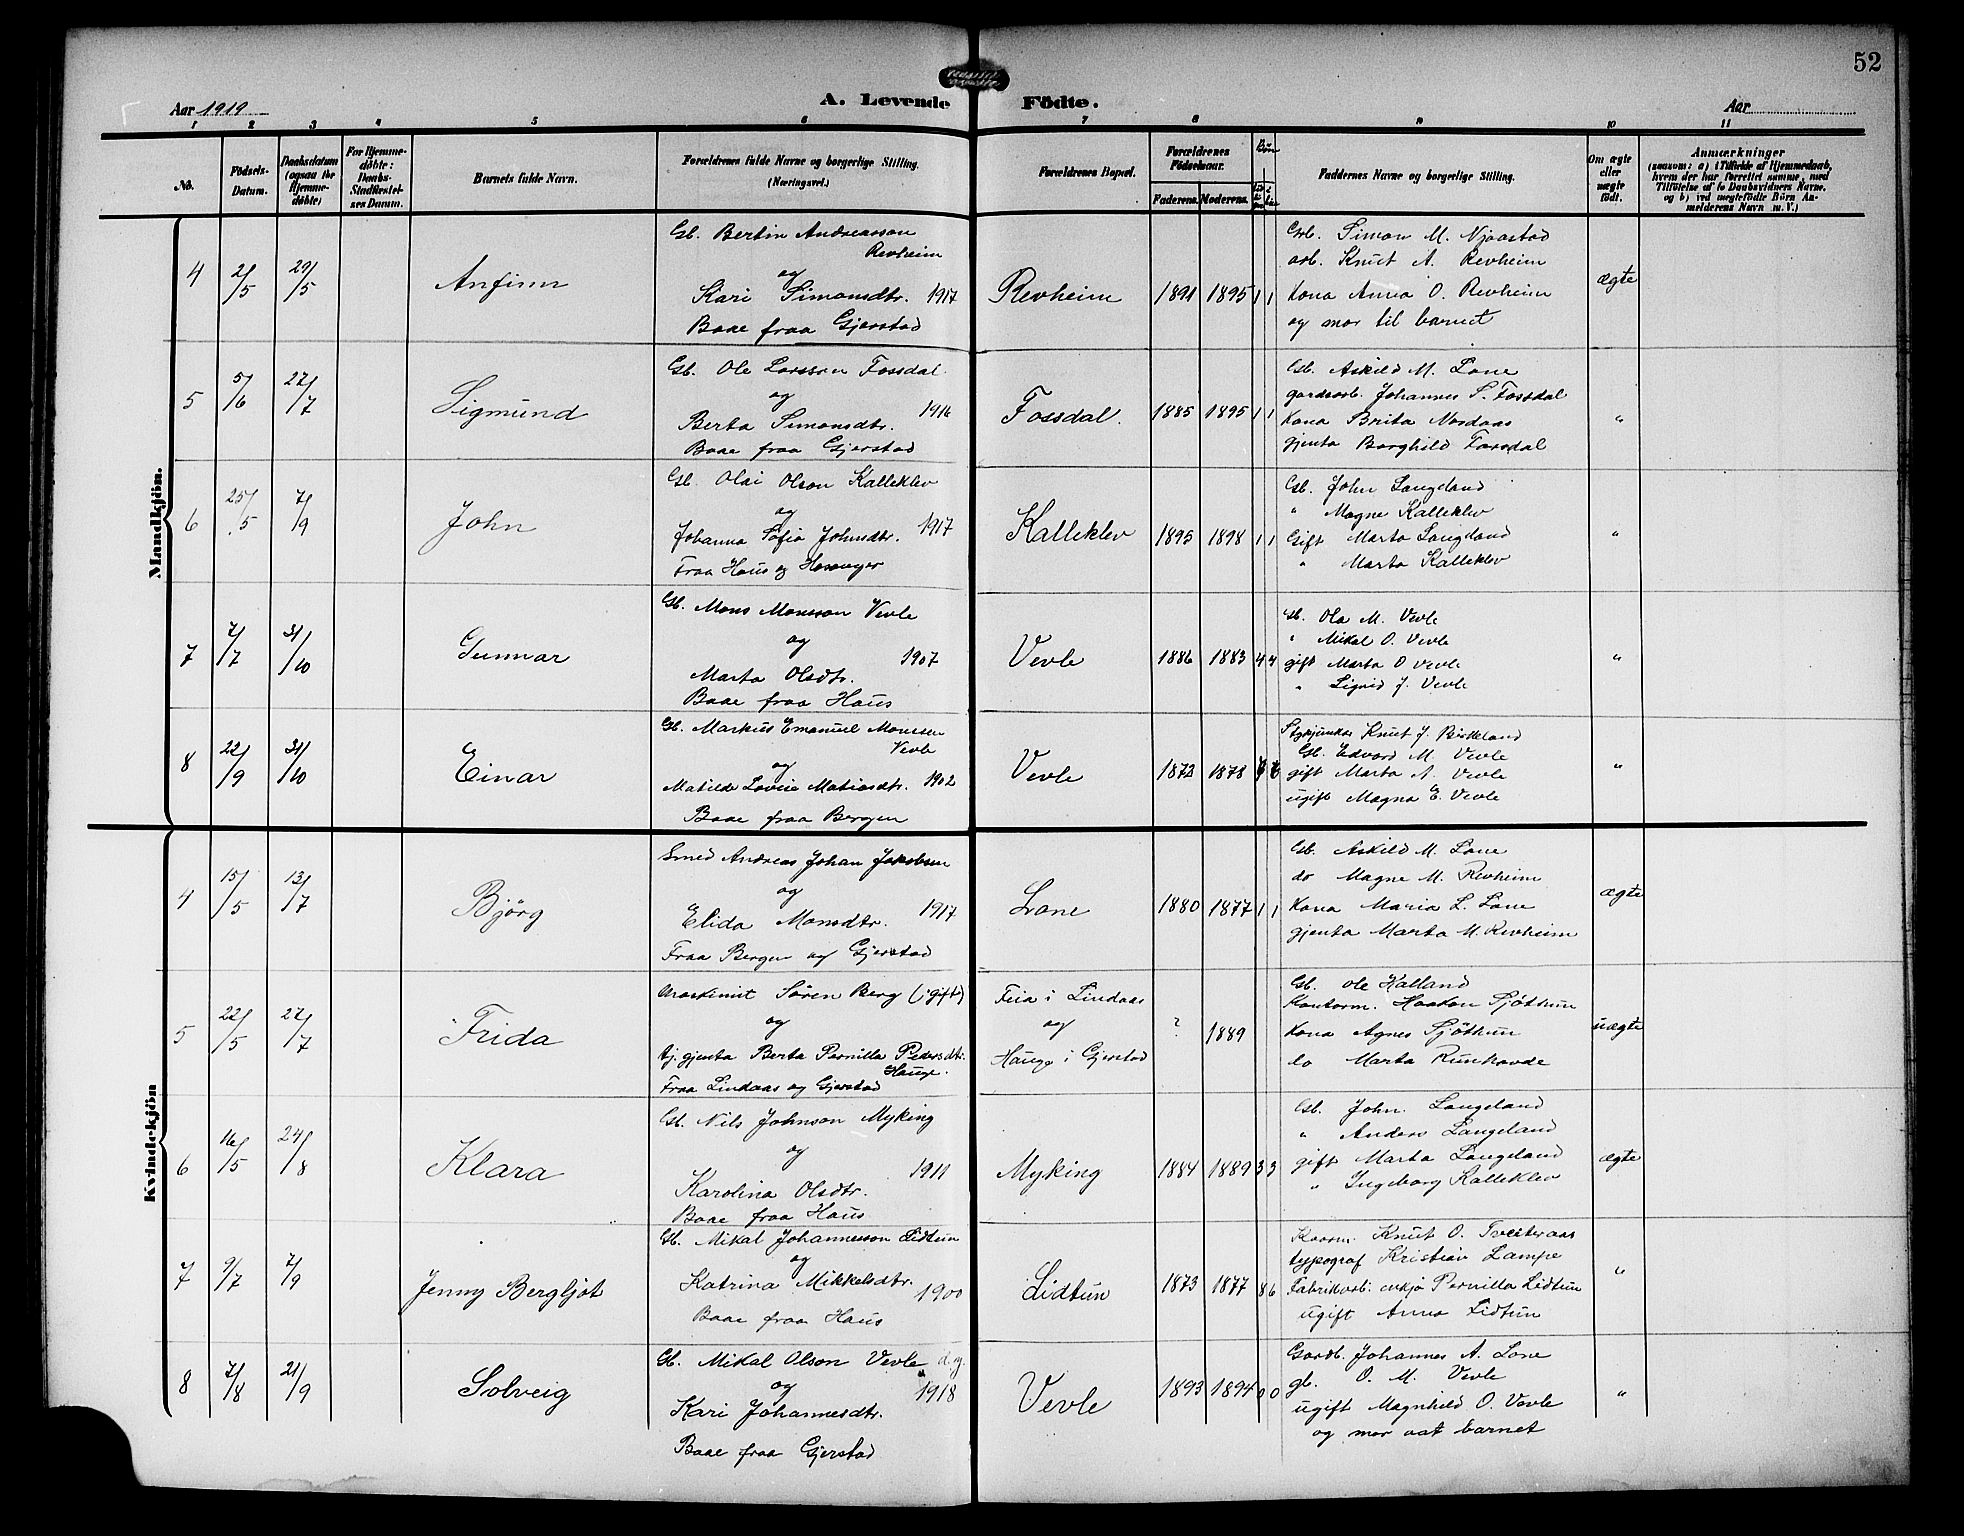 52
Aar 1919
A. Levende Födte.
Aar
1 2 3 4 5 6 7 8 9 10 11
No.
Födsels-Datum.
Daabsdatum (ogsaa for Hjemmedöbte)
For Hjemmedöbte: Daabs-Stadfæstelses Datum.
Barnets fulde Navn.
Forældrenes fulde Navne og borgerlige Stilling. (Næringsvei.)
Forældrenes Bopæl.
Forældrenes Födselsaar.
Faderens. Moderens.
Börn
Faddernes Navne og borgerlige Stilling.
Om ægte eller uægte födt.
Anmærkninger
(saasom: a) i Tilfælde af Hjemmedaab, hvem der har forrettet samme, med Tilföielse af to Daabsvidners Navne, og b) ved uægtefödte Börn Anmelderens Navn m. V.)
Mandkjön.
4 2/5 29/5 Anfinn
Gb. Bertin Andreasson
Revheim
og
Kari Simonsdtr. 1917
Baae fraa Gjerstad
Revheim 1891 1895 1 1
Grb. Simon M. Njaastad
arb. Knut A. Revheim
Kona Anna O. Revheim
og mor til barnet
ægte
5 5/6 27/7 Sigmund
Gb. Ole Larsson Fossdal
og 1916
Berta Simonsdtr.
Baae fraa Gjerstad
Fossdal. 1885 1895 1 1
Gb. Askild M. Lone
gardsarb. Johannes S. Fossdal
Kona Brita Nordaas
gjenta Borghild Fossdal
"
6 25/5 7/9 John
Gb. Olai Olson Kalleklev
og
Johanna Sofia Johnsdtr. 1917
Fraa Haus og Hosanger
Kalleklev 1895 1898 1 1
Gb. John Langeland
" Magne Kalleklev
Gift Marta Langeland
" Marta Kalleklev
"
7 7/7 31/10 Gunnar
Gb. Mons Monsson Vevle
og
1907
Marta Olsdtr.
Baae fraa Haus
Vevle 1886 1883 4 4
Gb. Ola M. Vevle
" Mikal O. Vevle
gift Marta O Vevle
" Sigrid J. Vevle
"
8 22/9 31/10 Einar
Gb. Markus Emanuel Monsen
Vevle
og
Matilde Lovise Matiasdtr. 1902
Baae fraa Bergen
Vevle 1873 1878
Knut J. Birkeland
Gb. Edvard M. Vevle
gift Marta A. Vevle
ugift Magna E. Vevle
"
Kvindekjön
4 15/5 13/7 Bjørg
Smed Andreas Johan Jakobsen
og
Elida Monsdtr. 1917
Fraa Bergen og Gjerstad
Lone 1880 1877 1 1
Gb. Askild M. Lone
do Magne M. Revheim
Kona Maria L. Lone
gjenta Marta M. Revheim
ægte
5 22/5 27/7 Frida
Maskinist Søren Berg (gift)
og
tj. gjenta Berta Pernilla Pedersdtr.
Hauge.
Fraa Lindaas og Gjerstad
Feia i Lindaas
og
Hauge i Gjerstad
? 1889
Gb. Ole Kalland
Kontorm. Haakon Sjøthun
Kona Agnes Sjøthun
do Marta Runhovde
uægte
6 16/5 24/8 Klara
Gb. Nils Johnson Myking
og
1911
Karolina Olsdtr.
Baae fraa Haus
Myking 1884 1889 3 3
Gb. John Langeland
" Anders Langeland
gift Marta Langeland
" Ingeborg Kalleklev
ægte
7 9/7 7/9 Jenny Bergljot
Gb. Mikal Johannesson Lidtun
og
Katrina Mikkelsdtr. 1900
Baae fraa Haus
Lidtun 1873 1877 8 6
Knut O. Tveiteraas
typograf Kristian Lampe
Fabrikarb. enkja Pernilla Lidtun
ugift Anna Lidtun
"
8 7/8 21/9 Solveig
Gb. Mikal Olson Vevle d.y.
og 1918
Kari Johannesdtr.
Baae fraa Gjerstad
Vevle 1893 1894 0 0
Gardb. Johannes A. Lone
gb. O. M. Vevle
ugift Magnhild O. Vevle
og mor aat barnet
"